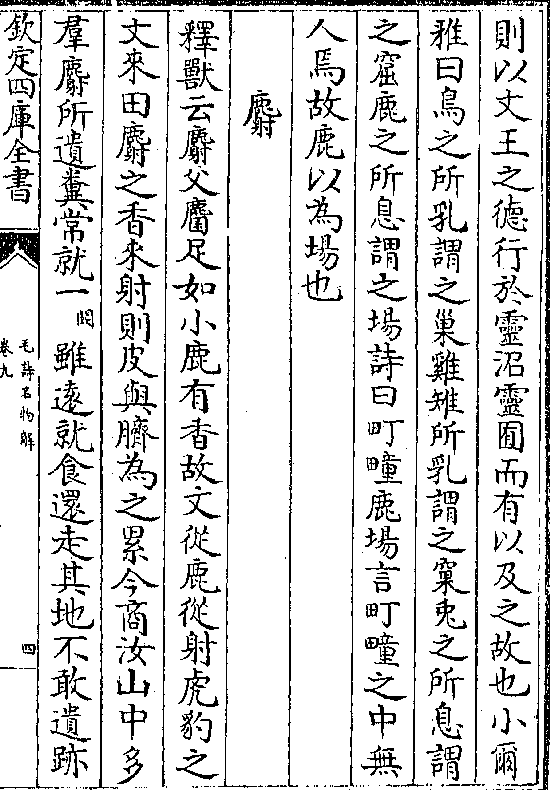 則以文王之德行於靈沼靈囿而有以及之故也小爾
雅曰鳥之所乳謂之巢雞雉所乳謂之窠兎之所息謂
之窟鹿之所息謂之場詩曰町畽鹿場言町畽之中無
人焉故鹿以為場也
麝
釋獸云麝父麕足如小鹿有香故文從鹿從射虎豹之
文來田麝之香來射則皮與臍為之累今商汝山中多
羣麝所遺糞常就一闕雖遠就食還走其地不敢遺跡
欽定四庫全書
毛詩名物解
卷九
四